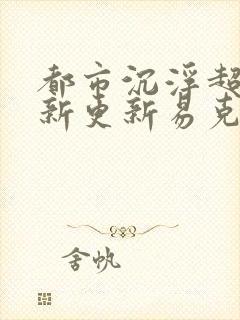 都市沉浮超
新更新易克
舍帆